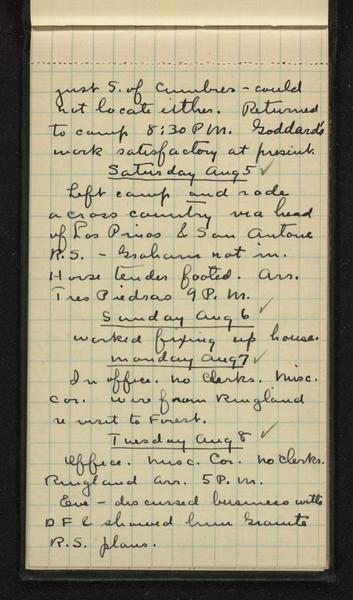 just S. of Cumbres - could
not locate either. Returned
to camp 8:30 P.M. Goddard's
work satisfactory at present.
Saturday Aug 5 ✓
Left camp and rode
across country via head
of Los Pinos & San Antone
R.S. - Graham not in.
Horse tender footed. Arr.
Tres Piedras 9 P.M.
Sunday Aug 6 ✓
Worked fixing up house.
Monday Aug 7 ✓
In office. No clerks. Misc.
Cor. Wire from Ringland
re visit to Forest.
Tuesday Aug 8 ✓
Office. Misc. Cor. No clerks.
Ringland arr. 5 P.M.
Eve - discussed business with
D F & showed him Granite
R.S. plans.